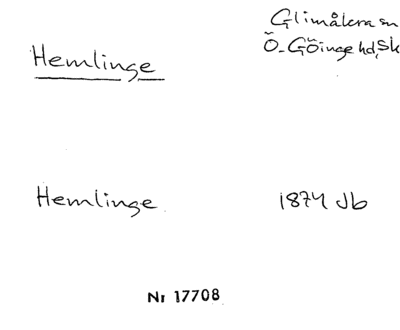 Glimåkra sn
Hemlinge
Ö-Göinge hd, Sk
Hemlinge
1874 Jb
Nr 17708